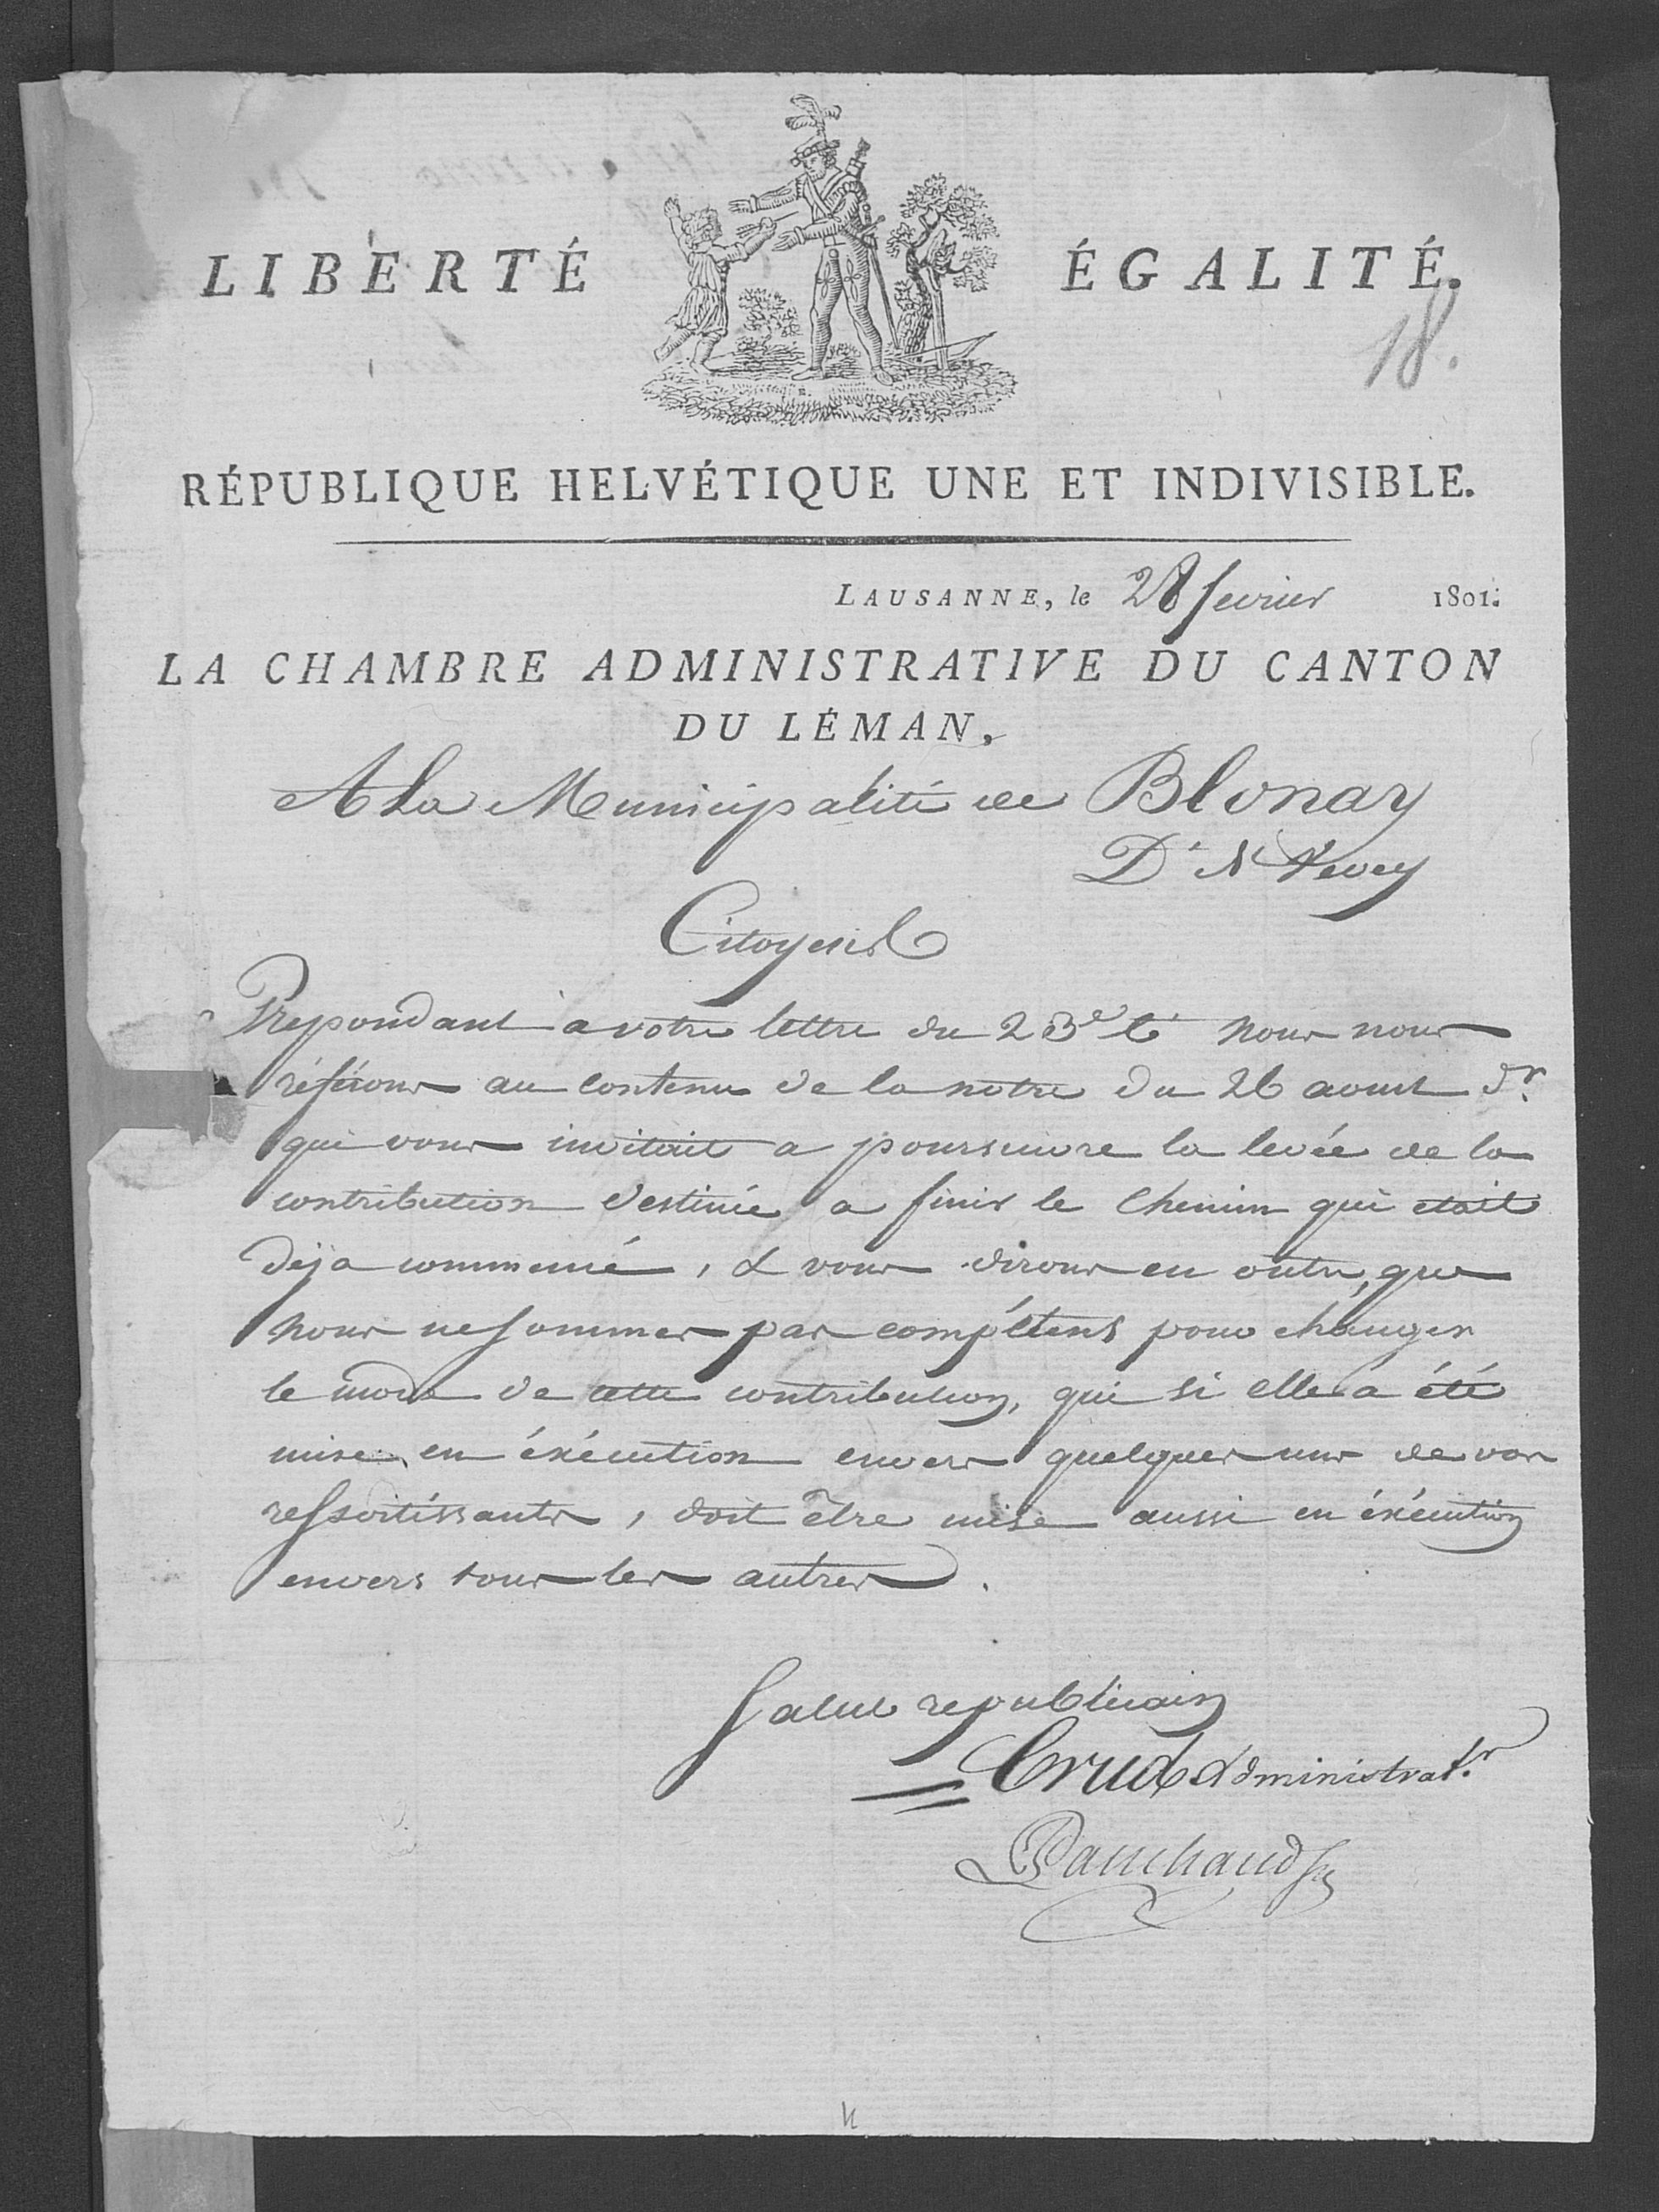 LIBERTÉ ÉGALITÉ.
18.
RÉPUBLIQUE HELVÉTIQUE UNE ET INDIVISIBLE.
LAUSANNE, le 28 fevrier 1801.
LA CHAMBRE ADMINISTRATIVE DU CANTON
DU LÉMAN,
A La Municipalité de Blonay
Vevey
Citoyens
Repondant a votre lettre du 23e Ct nous nous
référons au contenu de la notre du 26 aoust dr.
qui vous invitait a poursuivre la levée de la
contribution destinée a finir le Chemin qui etait
deja commencé, & vous dirons en outre, que
nous ne sommes pas compétens pour changer
le mode de cette contribution, qui si elle a été
mise en éxécution envers quelques uns de vos
ressortissants, doit être mise aussi en éxécution
envers tous les autres.
Salut republicain
Crud Administratr.
Panchaud